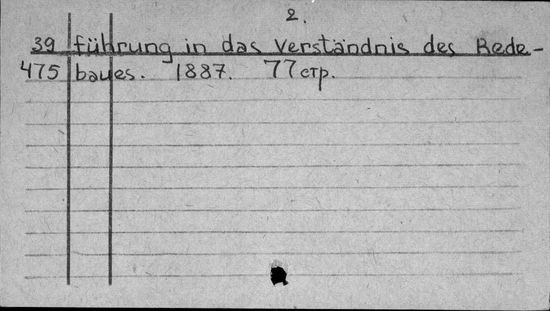 2.
39 führung in das Verständnis des Rede-
475 baues. 1887. 77 стр.